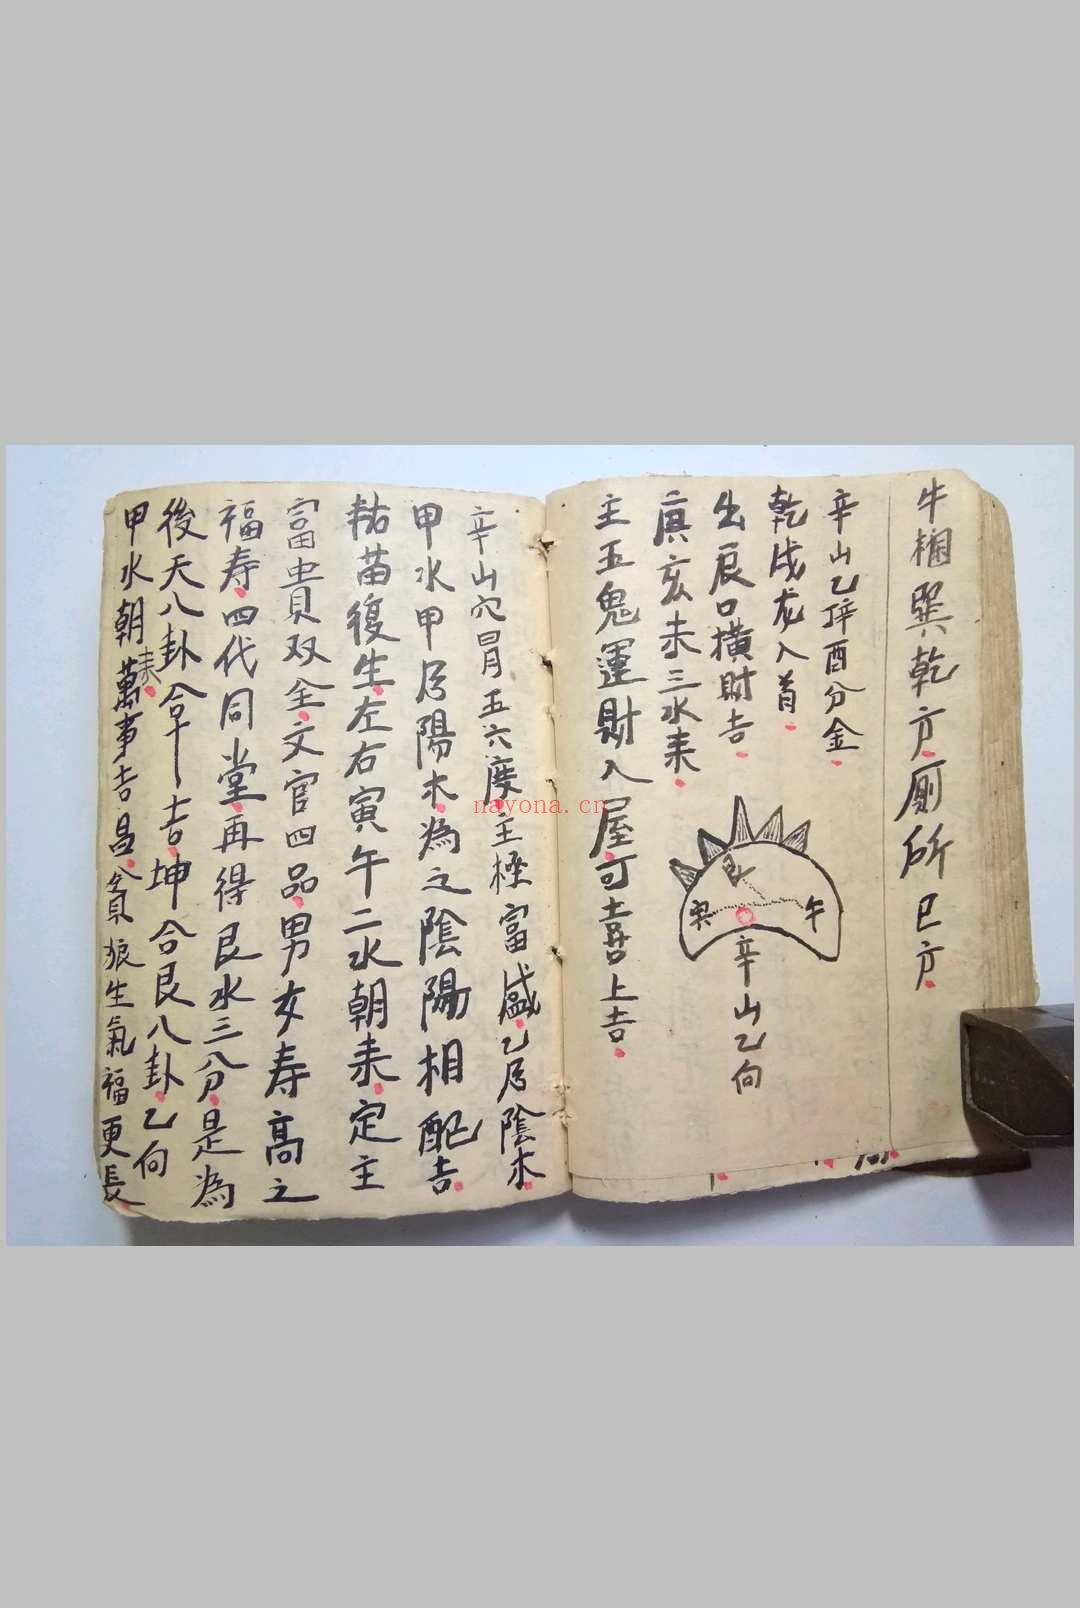 牛欄巽乾方厠所巳方
辛山乙
酉分金
乾戌龙入首
出辰口橫財吉
亥未三水来
艮
寅
午
辛山乙向
主五鬼運財入屋可喜上吉
辛山穴
五六度主極富盛乙為陰木
甲水甲為陽木為之陰陽相配吉
枯苗復生左右寅午二水朝来定主
富貴双全文官四品男女寿高之
福寿四代同堂再得艮水三分是為
後天八卦合
吉坤合艮八卦乙向
甲水朝来萬事吉昌貪狼生氣福更長
nayona.cn